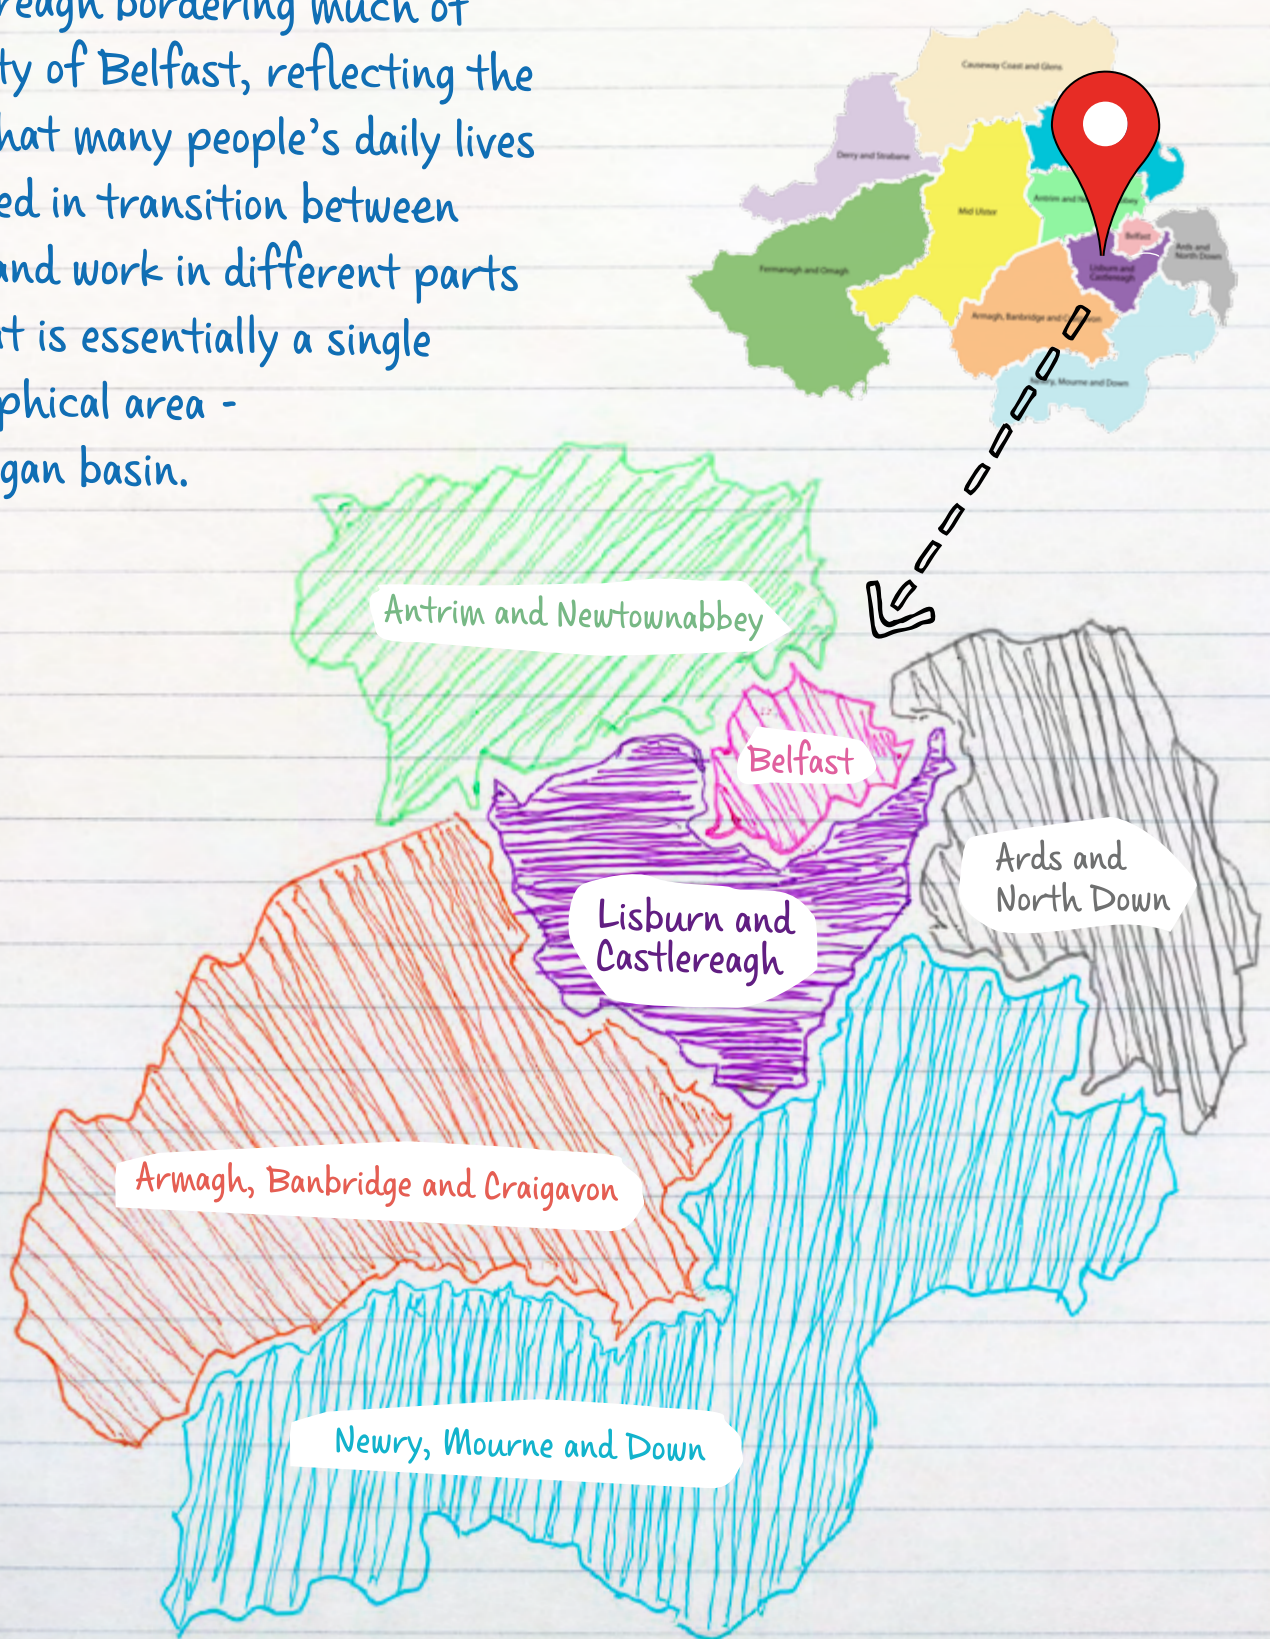 reagh bordering much of
ty of Belfast, reflecting the
hat many people's daily lives
ed in transition between
and work in different parts
t is essentially a single
phical area -
gan basin.
Causeway Coast and Glens
Derry and Strabane
Mid Ulster
Antrim and
Belfast
Ards and
North Down
Fermanagh and Omagh
Lisburn and
Castlereagh
Armagh, Banbridge and
Newry, Mourne and Down
Antrim and Newtownabbey
Belfast
Ards and
North Down
Lisburn and
Castlereagh
Armagh, Banbridge and Craigavon
Newry, Mourne and Down